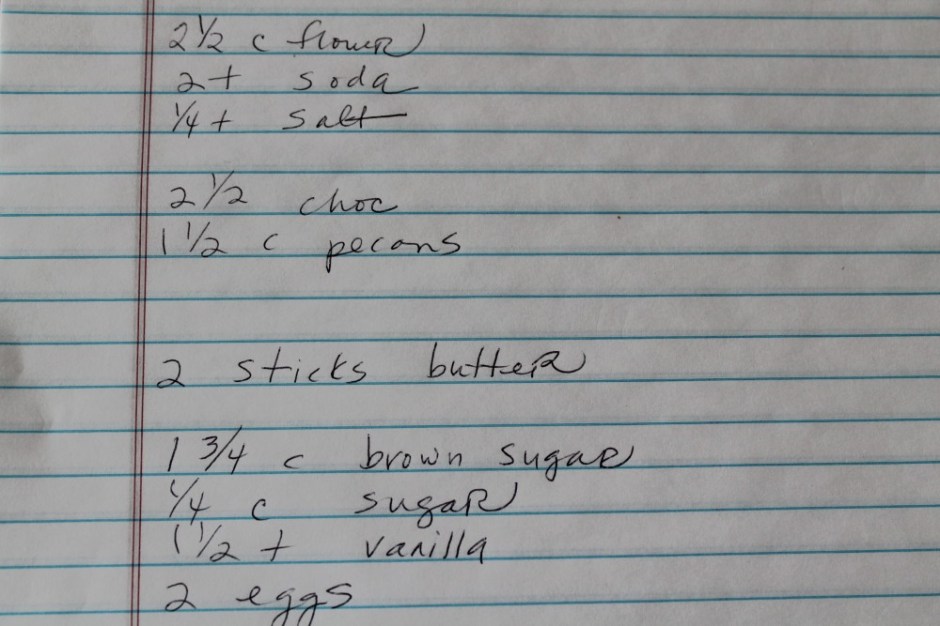 2 1/2 c flower
2 t soda
1/4 t salt
2 1/2 choc
1 1/2 c pecans
2 sticks butter
1 3/4 c brown sugar
1/4 c sugar
1 1/2 t vanilla
2 eggs